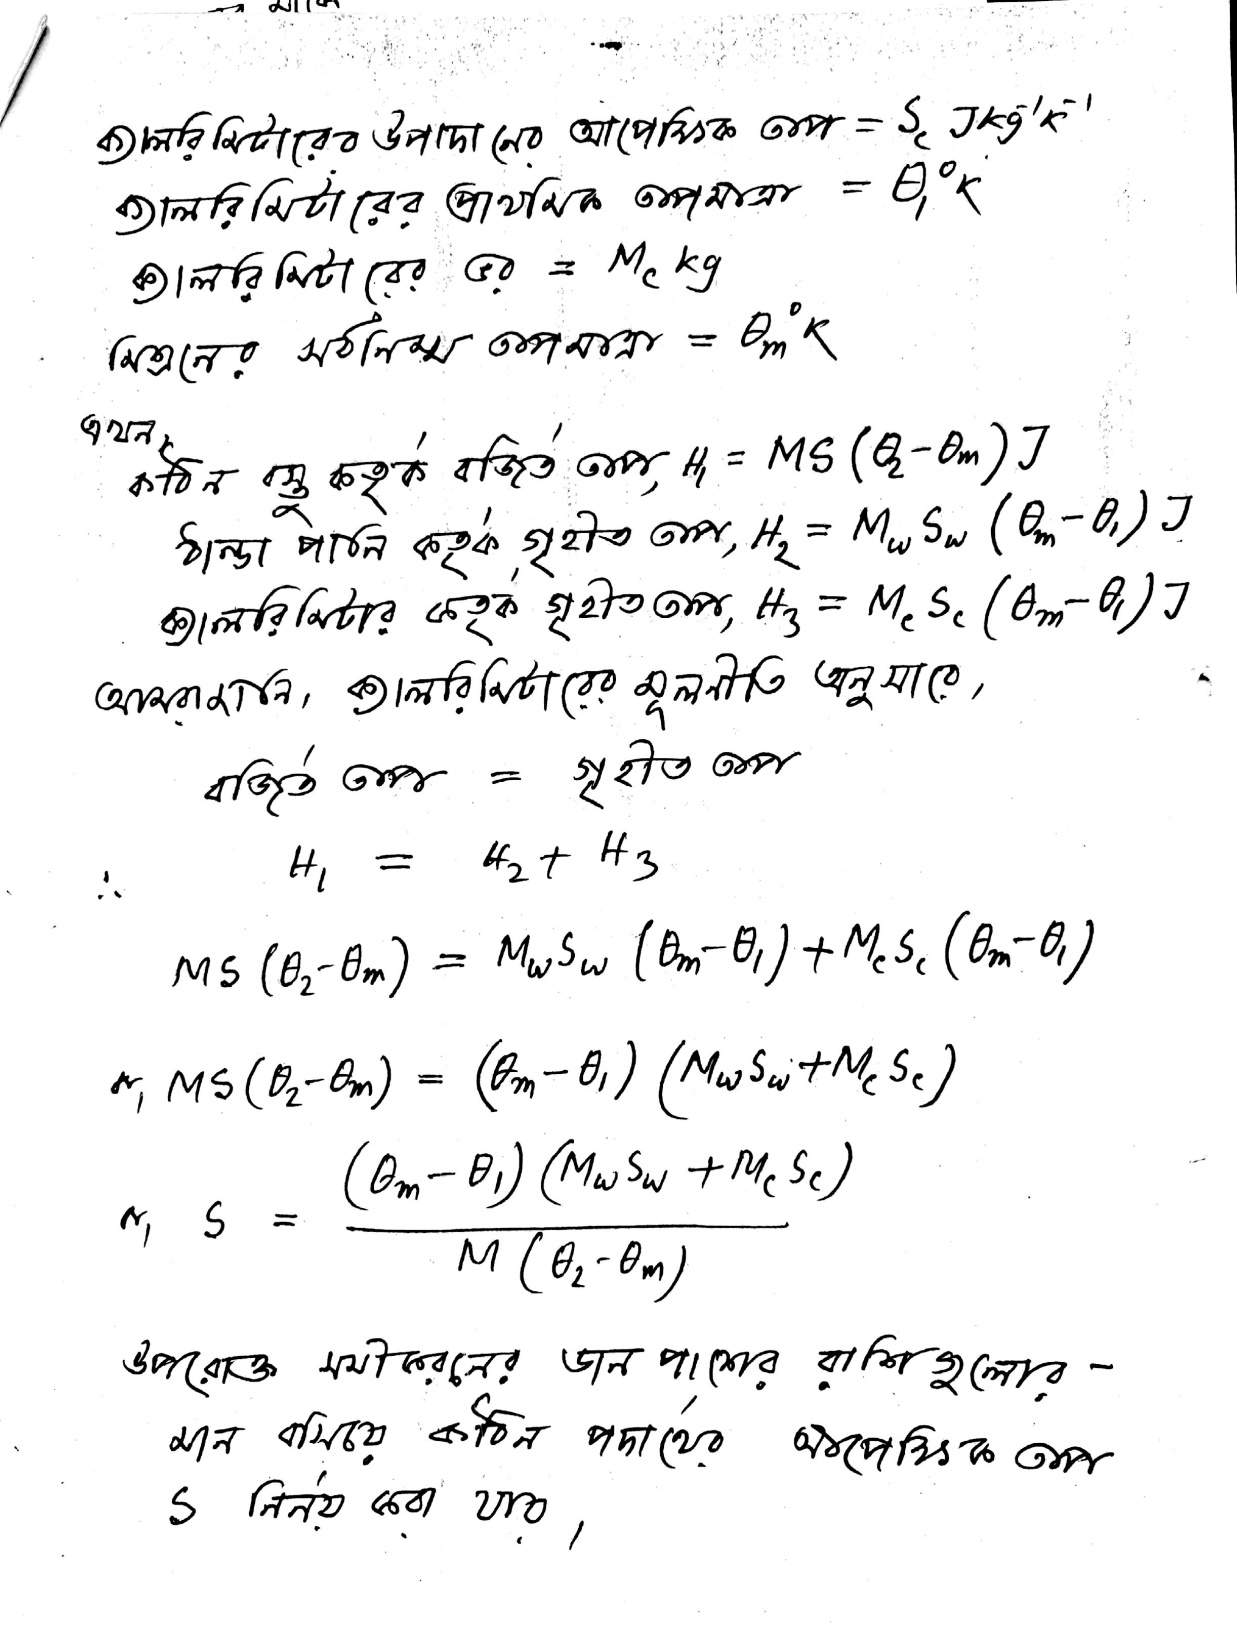 ক্যালরিমিটারের উপাদানের আপেক্ষিক তাপ = S_c Jkg⁻¹K⁻¹
ক্যালরিমিটারের প্রাথমিক তাপমাত্রা = θ₁°K
ক্যালরিমিটারের ভর = M_c kg
মিশ্রনের সর্বনিম্ম তাপমাত্রা = θ_m°K
এখন,
কঠিন বস্তু কর্তৃক বর্জিত তাপ, H₁ = MS (θ₂-θ_m) J
ঠান্ডা পানি কর্তৃক গৃহীত তাপ, H₂ = M_w S_w (θ_m-θ₁) J
ক্যালরিমিটার কর্তৃক গৃহীত তাপ, H₃ = M_c S_c (θ_m-θ₁) J
আমরা জানি, ক্যালরিমিটারের মূলনীতি অনুসারে,
বর্জিত তাপ = গৃহীত তাপ
∴ H₁ = H₂ + H₃
MS (θ₂-θ_m) = M_w S_w (θ_m-θ₁) + M_c S_c (θ_m-θ₁)
বা, MS (θ₂-θ_m) = (θ_m-θ₁) (M_w S_w + M_c S_c)
বা, S = (θ_m-θ₁) (M_w S_w + M_c S_c) / M (θ₂-θ_m)
উপরোক্ত সমীকরনের ডান পাশের রাশিগুলোর -
মান বসিয়ে কঠিন পদার্থের আপেক্ষিক তাপ
S নির্নয় করা যায়,